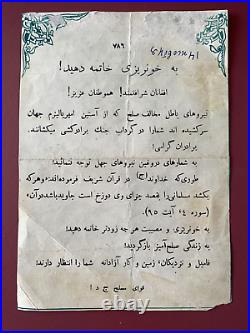 ۷۸۶
به خونریزی خاتمه دهید!
افغانان شرافتمند! هموطنان عزیز!
نیروهای باطل مخالف صلح که از آستین امپریالیزم جهان
سرکشیده اند شما را در گرداب جنگ برادرکشی میکشانند.
برادران گرامی!
به شعارهای دروغین نیروهای جهل توجه ننمائید!
طوری که خداوند (ج) در قرآن شریف فرموده‌اند «و هر که
بکشد مسلمانی را بقصد جزای وی دوزخ است جاوید باشد در آن»
(سوره ۴، آیت ۹۵)
به خونریزی و مصیبت هر چه زودتر خاتمه دهید!
به زندگی صلح‌آمیز بازگردید!
فامیل و نزدیکان، زمین و کار آزادانه شما را انتظار دارند!
قوای مسلح ج د ا